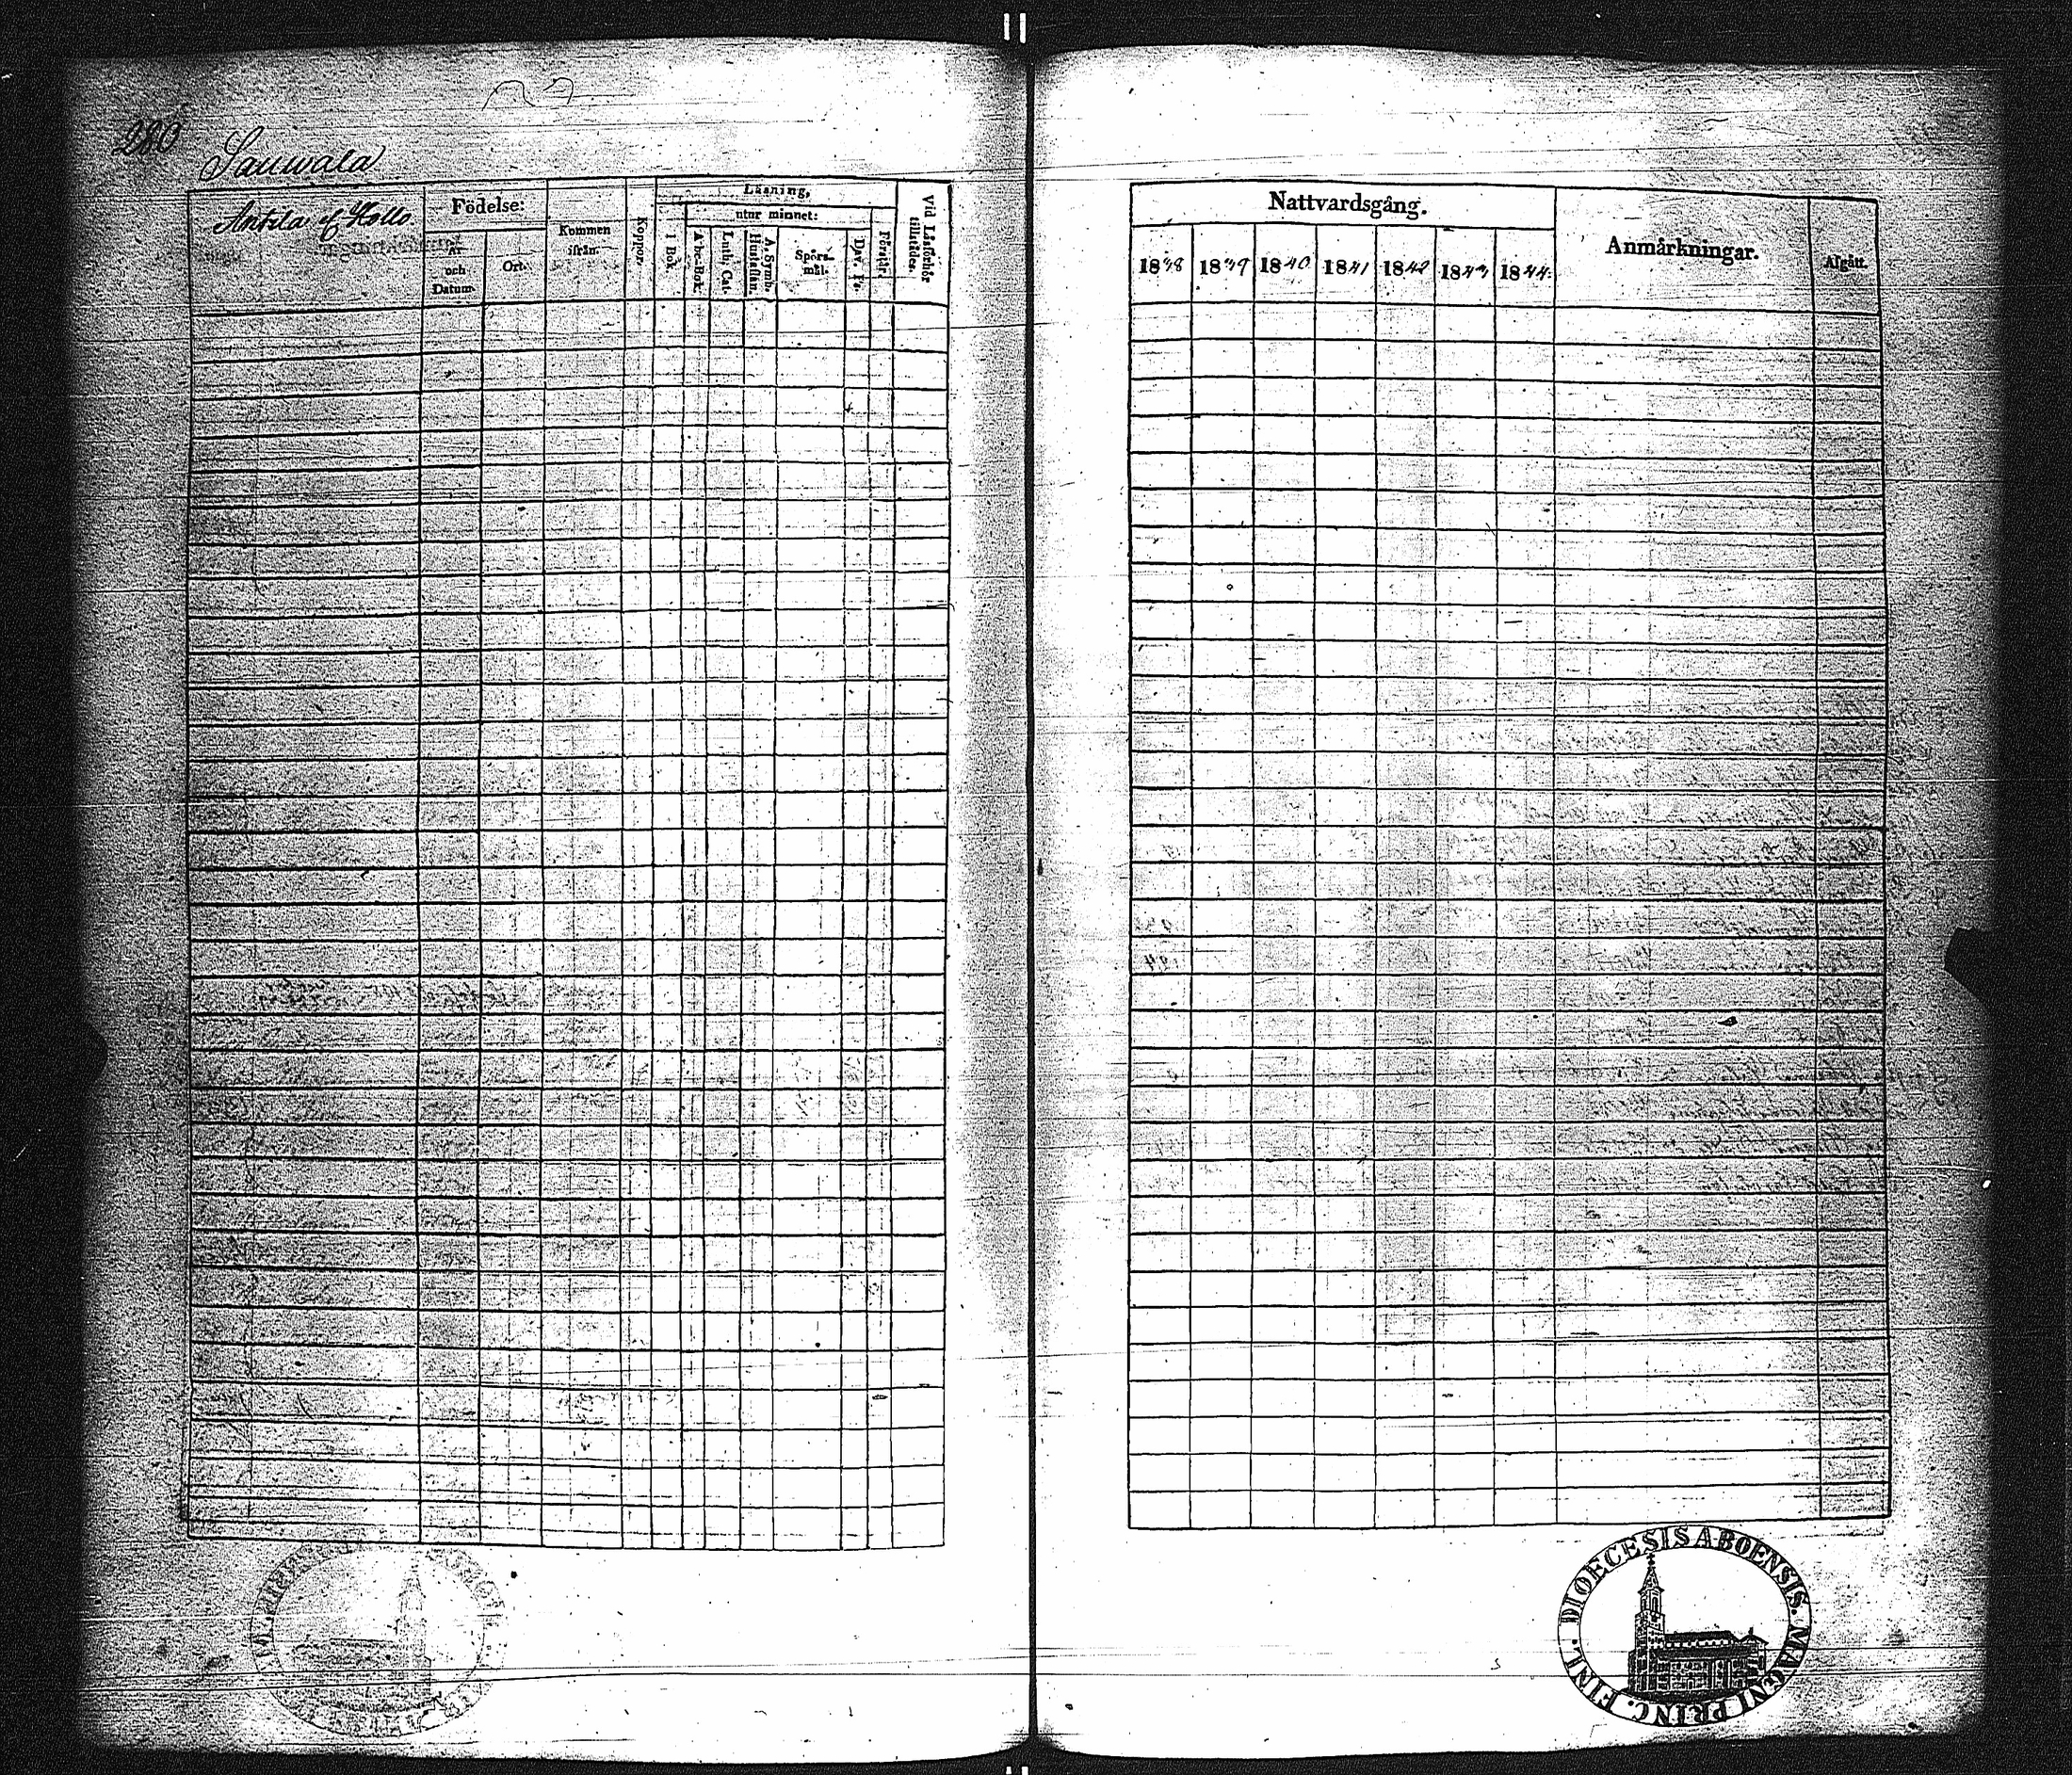 280
Sauwala
Antila el Hollo
Födelse:
År och Datum.
Ort.
Kommen ifrån.
Koppor.
Läsning,
I Bok.
utur minnet:
A-b-c-Bok.
Luth. Cat.
A. Symb. Hustaflan.
Spörs-mål.
Dav. Ps.
Förstår.
Vid Läsförhör tillstädes.
Nattvardsgång.
1838 1839 1840 1841 1842 1843 1844.
Anmärkningar.
Afgått.
DIOECESIS ABOENSIS. MAGNI PRINC. FINL.